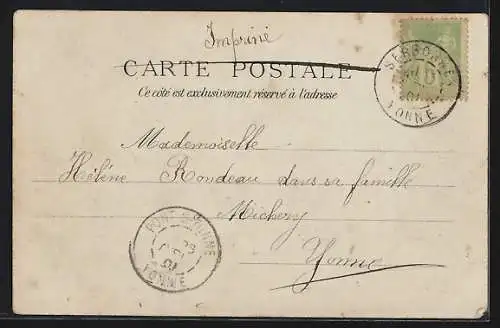 Imprimé
CARTE POSTALE
Ce côté est exclusivement réservé à l'adresse
SERGINES
YONNE
Mademoiselle
Hélène Rondeau dans sa famille
Michery
Yonne
PONT-S-YONNE
YONNE